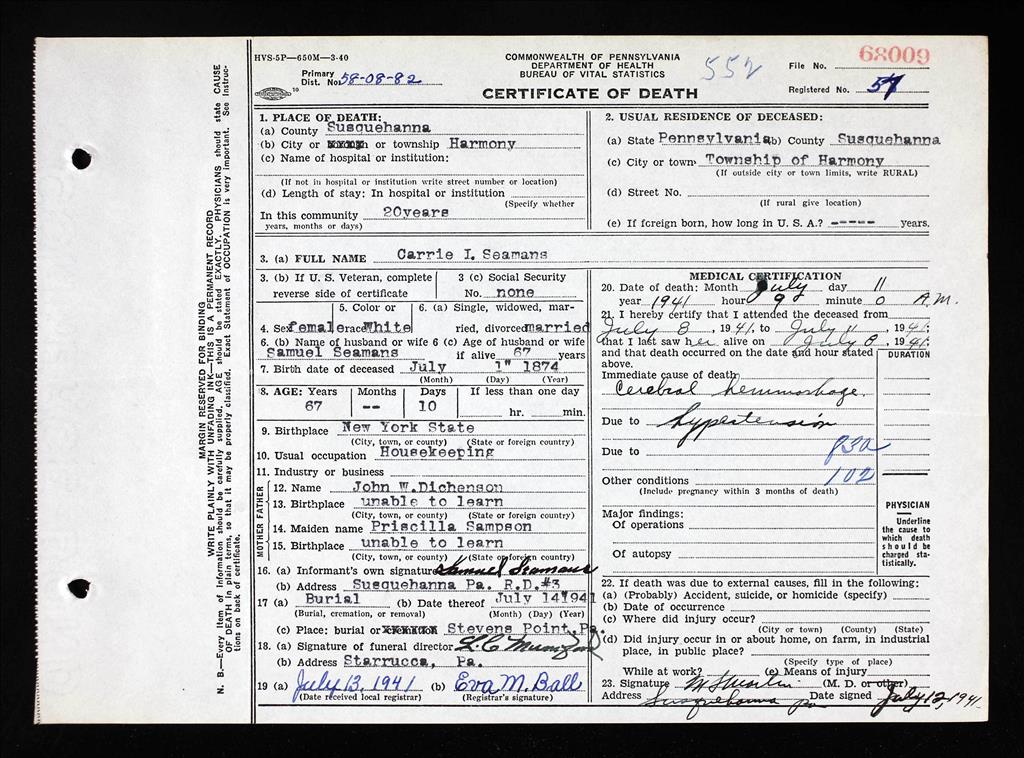 HVS-5P—650M—3-40
COMMONWEALTH OF PENNSYLVANIA
DEPARTMENT OF HEALTH
BUREAU OF VITAL STATISTICS
CERTIFICATE OF DEATH
Primary Dist. No. 58-08-82
552
68009
File No.
Registered No. 57
1. PLACE OF DEATH:
(a) County Susquehanna
(b) City or or township Harmony
(c) Name of hospital or institution:
(If not in hospital or institution write street number or location)
(d) Length of stay: In hospital or institution
(Specify whether
In this community 20years
years, months or days)
2. USUAL RESIDENCE OF DECEASED:
(a) State Pennsylvania (b) County Susquehanna
(c) City or town Township of Harmony
(If outside city or town limits, write RURAL)
(d) Street No.
(If rural give location)
(e) If foreign born, how long in U. S. A.? ----- years.
3. (a) FULL NAME Carrie I. Seamans
3. (b) If U. S. Veteran, complete reverse side of certificate
3 (c) Social Security No. none
4. Sex female
5. Color or race White
6. (a) Single, widowed, married, divorced married
6. (b) Name of husband or wife Samuel Seamans
6 (c) Age of husband or wife if alive 67 years
7. Birth date of deceased July 1" 1874
(Month) (Day) (Year)
8. AGE: Years 67 Months -- Days 10 If less than one day hr. min.
9. Birthplace New York State
(City, town, or county) (State or foreign country)
10. Usual occupation Housekeeping
11. Industry or business
FATHER
12. Name John W.Dichenson
13. Birthplace unable to learn
(City, town, or county) (State or foreign country)
MOTHER
14. Maiden name Priscilla Sampson
15. Birthplace unable to learn
(City, town, or county) (State or foreign country)
16. (a) Informant's own signature Samuel Seamans
(b) Address Susquehanna Pa. R.D.#3
17 (a) Burial (b) Date thereof July 14"1941
(Burial, cremation, or removal) (Month) (Day) (Year)
(c) Place: burial or Stevens Point, Pa.
18. (a) Signature of funeral director L.C.
(b) Address Starrucca, Pa.
19 (a) July 13, 1941 (b) Eva M. Ball
(Date received local registrar) (Registrar's signature)
MEDICAL CERTIFICATION
20. Date of death: Month July day 11
year 1941 hour 9 minute 0 A.M.
21. I hereby certify that I attended the deceased from
July 8, 1941, to July 11, 1941.
that I last saw her alive on July 8, 1941.
and that death occurred on the date and hour stated above.
DURATION
Immediate cause of death
Cerebral hemmorhage
Due to hypertension
Due to 83a
102
Other conditions
(Include pregnancy within 3 months of death)
Major findings:
Of operations
Of autopsy
PHYSICIAN
Underline
the cause to
which death
should be
charged sta-
tistically.
22. If death was due to external causes, fill in the following:
(a) (Probably) Accident, suicide, or homicide (specify)
(b) Date of occurrence
(c) Where did injury occur?
(City or town) (County) (State)
(d) Did injury occur in or about home, on farm, in industrial place, in public place?
(Specify type of place)
While at work? (e) Means of injury
23. Signature (M. D. or other)
Address Susquehanna Pa Date signed July 12, 1941.
MARGIN RESERVED FOR BINDING
WRITE PLAINLY WITH UNFADING INK—THIS IS A PERMANENT RECORD
N. B.—Every item of information should be carefully supplied. AGE should be stated EXACTLY. PHYSICIANS should state CAUSE
OF DEATH in plain terms, so that it may be properly classified. Exact Statement of OCCUPATION is very important. See Instruc-
tions on back of certificate.